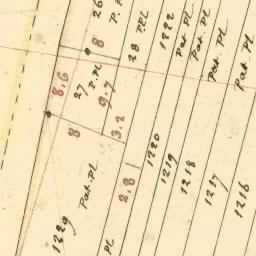 26
P.
8
28 P.PL
1222
Pat PL
Pat. PL
Pat PL
Pat PL
8.6
27 P.PL
9.7
8
3.2
2.8
1220
1219
1218
1217
1216
1229
Pat. PL
PL